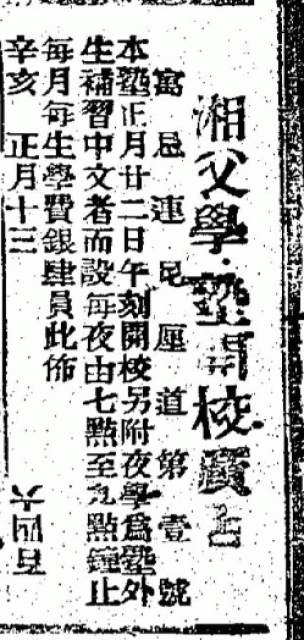 湘父學塾開校廣告
寓忌連尼厘道第壹號
本塾正月廿二日午刻開校另附夜學爲塾外
生補習中文者而設每夜由七點至九點鐘止
每月每生學費銀肆員此佈
辛亥 正月十三